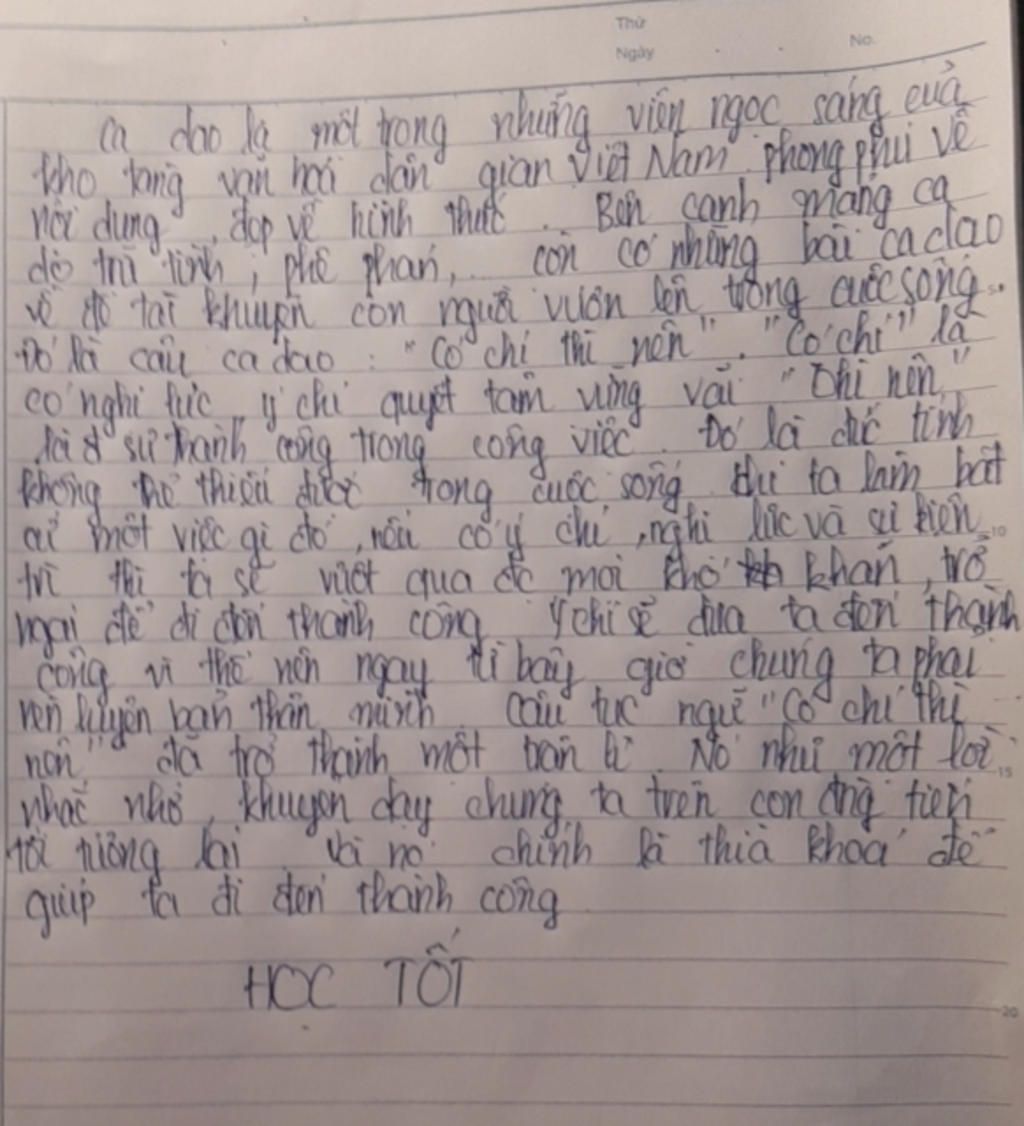 Thứ
Ngày
No.
Ca dao là một trong những viên ngọc sáng của
kho tàng văn hoá dân gian Việt Nam phong phú về
nội dung, đẹp về hình thức. Bên cạnh mảng ca
dò trữ tình, phê phán,... còn có những bài ca dao
về đề tài khuyên con người vươn lên trong cuộc sống.
Đó là câu ca dao: "Có chí thì nên". "Có chí" là
có nghị lực, ý chí quyết tâm vững vải "Thì nên"
là sự thành công trong công việc. Đó là đức tính
không thể thiếu được trong cuộc sống khi ta làm bất
cứ một việc gì đó, nếu có ý chí, nghị lực và sự kiên
trì thì ta sẽ vượt qua đc mọi khó khăn, trở
ngại để đi đến thành công. Ý chí sẽ đưa ta đến thành
công vì thế nên ngay từ bây giờ chúng ta phải
rèn luyện bản thân mình. Câu tục ngữ "Có chí thì
nên" đã trở thành một chân lí. Nó như một lời
nhắc nhở, khuyên dạy chúng ta trên con đng tiến
tới tương lai. Và nó chính là thìa khoá để
giúp ta đi đến thành công
HỌC TỐT
10
15
20